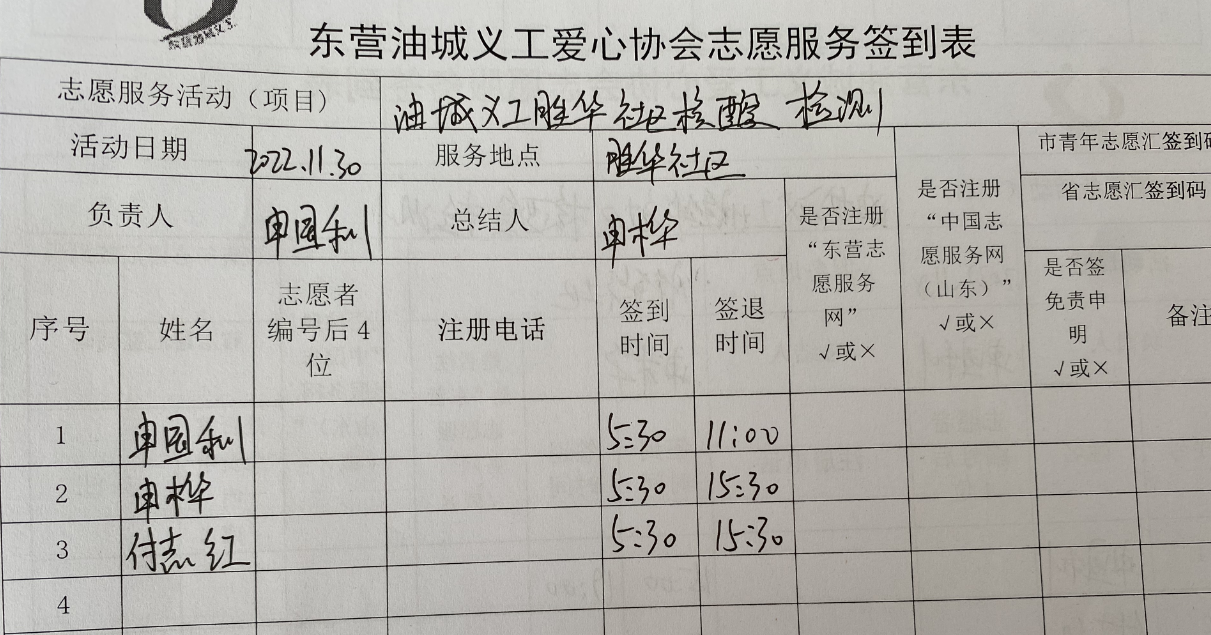 东营油城义工
东营油城义工爱心协会志愿服务签到表
志愿服务活动（项目） 油城义工胜华社区核酸检测
活动日期 2022.11.30 服务地点 胜华社区 市青年志愿汇签到码
负责人 申国利 总结人 申桦 省志愿汇签到码
是否注册
“东营志
愿服务
网”
√或×
是否注册
“中国志
愿服务网
（山东）”
√或×
序号 姓名
志愿者
编号后4
位
注册电话
签到
时间
签退
时间
是否签
免责申
明
√或×
备注
1 申国利 5:30 11:00
2 申桦 5:30 15:30
3 付志红 5:30 15:30
4